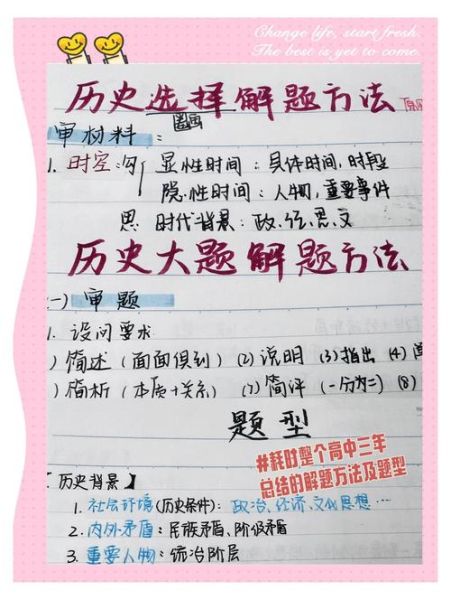 Change life, start fresh.
The best is yet to come.
历史选择解题方法
圈画
审材料：
1. 时空：勾 显性时间：具体时间，时段
隐性时间：人物，重要事件
思 时代背景：政.经.思.文
历史大题解题方法
一）审题
1. 设问要求
）简述（面面俱到）(2) 说明 (3) 指出 (4)
）简析（本质+关系） (7) 简评（一分为二） (8)
题型
#耗时整个高中三年
总结的解题方法及题型
【历史背景】
1. 社会环境(历史条件)：政治、经济、文化思想…
2. 内外矛盾：民族矛盾、阶级矛盾
3. 重要人物：统治阶层